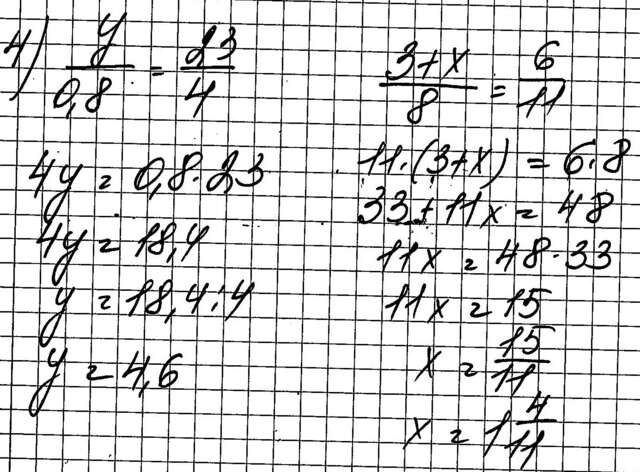 4) y/0,8 = 23/4
4y = 0,8·23
4y = 18,4
y = 18,4:4
y = 4,6
(3+x)/8 = 6/11
11·(3+x) = 6·8
33+11x = 48
11x = 48·33
11x = 15
x = 15/11
x = 1 4/11